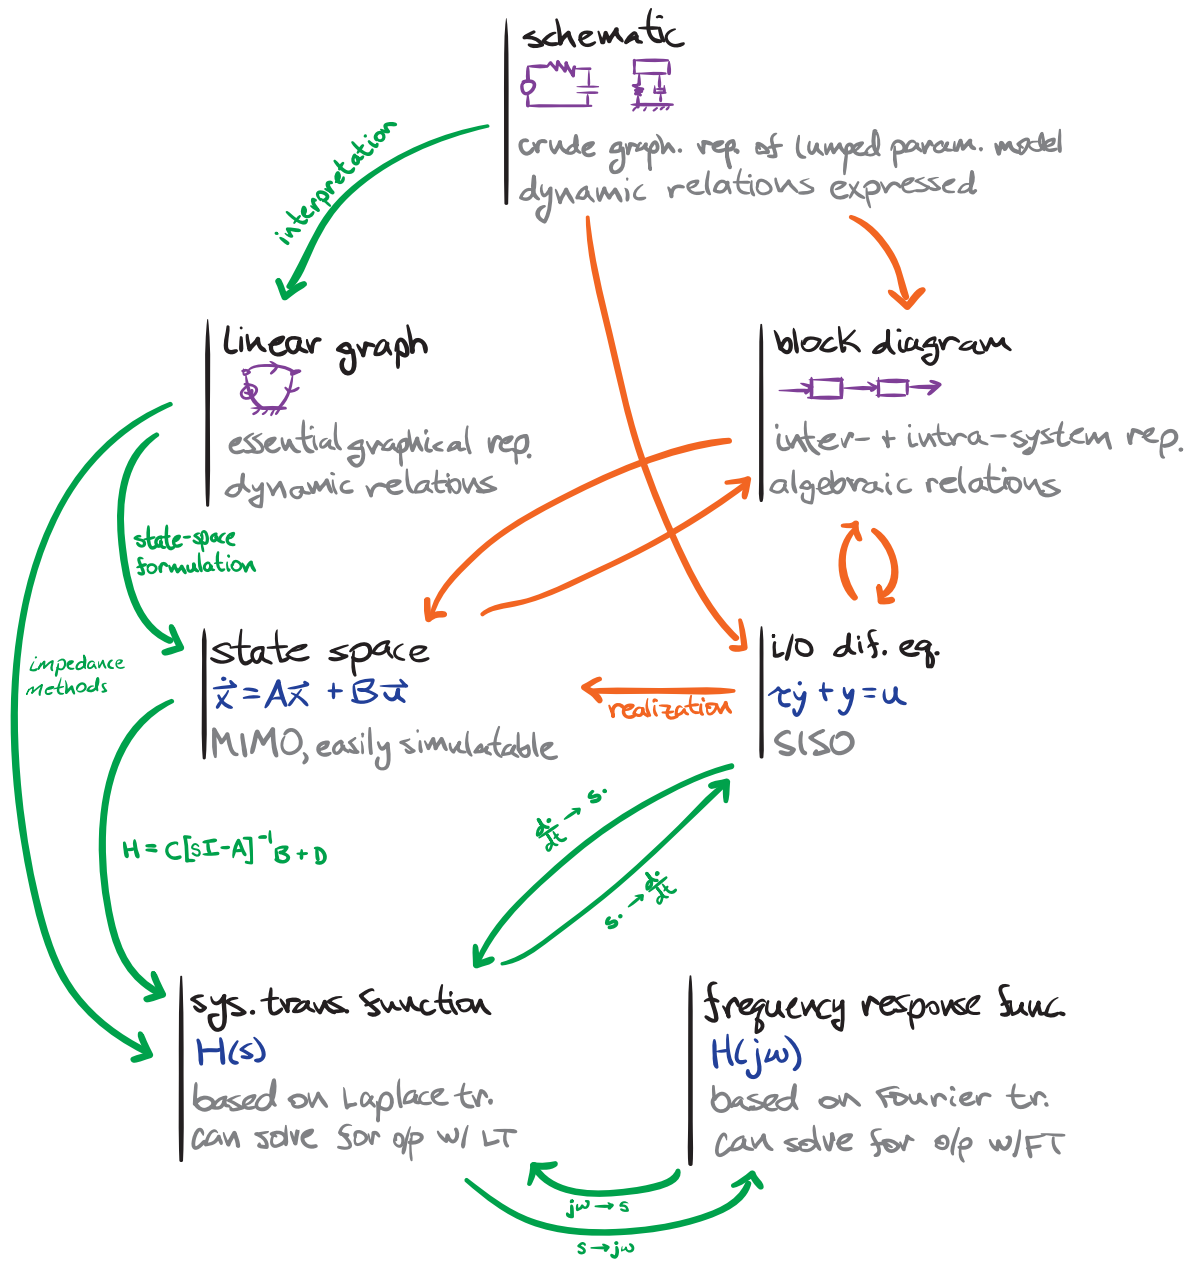 schematic
crude graph. rep. of lumped param. model
dynamic relations expressed
interpretation
linear graph
essential graphical rep.
dynamic relations
block diagram
inter- + intra-system rep.
algebraic relations
state-space
formulation
impedance
methods
state space
ẋ⃗ = Ax⃗ + Bu⃗
MIMO, easily simulatable
realization
i/o dif. eq.
τẏ + y = u
SISO
H = C[sI-A]⁻¹B + D
d·/dt → s·
s· → d·/dt
sys. trans. function
H(s)
based on Laplace tr.
can solve for o/p w/ LT
frequency response func.
H(jω)
based on Fourier tr.
can solve for o/p w/FT
jω → s
s → jω